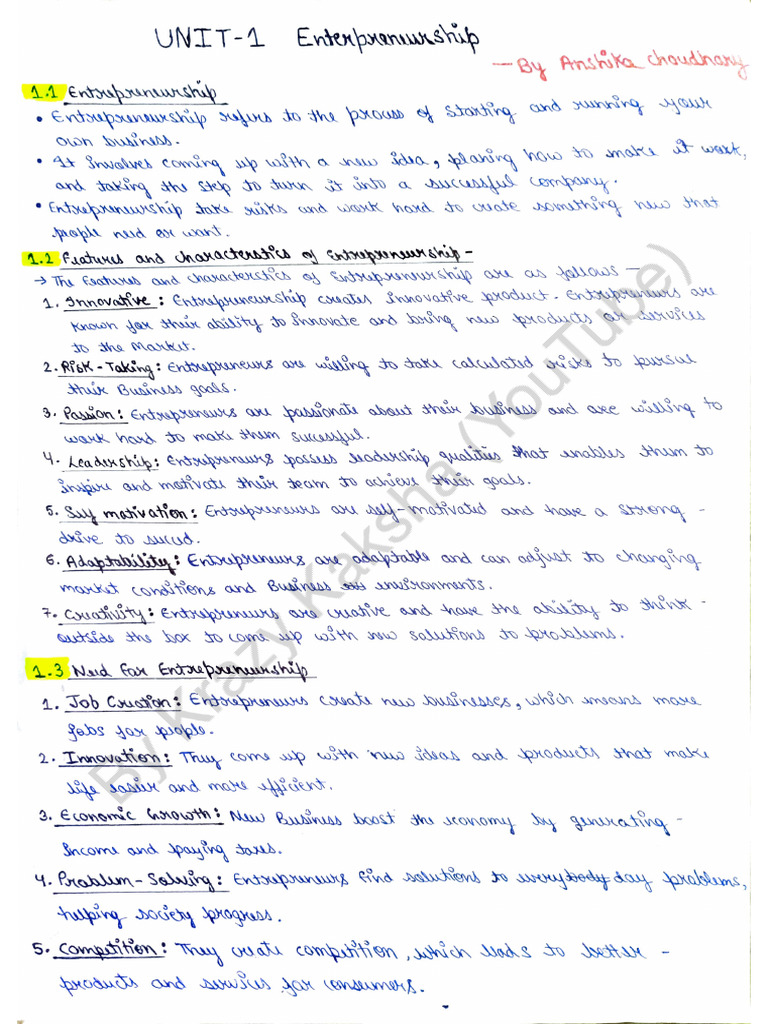 UNIT-1 Enterpreneurship
— By Anshika Choudhary
1.1 Entrepreneurship
• Entrepreneurship refers to the process of starting and running your
own business.
• It involves coming up with a new idea, planing how to make it work,
and taking the step to turn it into a successful company.
• Entrepreneurship take risks and work hard to create something new that
people need or want.
1.2 Features and characterstics of Entrepreneurship -
→ The Features and characterstics of Entrepreneurship are as follows —
1. Innovative: Entrepreneurship creates innovative product. Entrepreneurs are
known for their ability to innovate and bring new products or services
to the Market.
2. Risk-Taking: Entrepreneurs are willing to take calculated risks to pursue
their Business goals.
3. Passion: Entrepreneurs are passionate about their business and are willing to
work hard to make them successful.
4. Leadership: Entrepreneurs posses leadership qualities that enables them to
inspire and motivate their team to achieve their goals.
5. Self motivation: Entrepreneurs are self-motivated and have a strong -
drive to succed.
6. Adaptability: Entrepreneurs are adaptable and can adjust to changing
market conditions and Business environments.
7. Creativity: Entrepreneurs are creative and have the ability to think -
outside the box to come up with new solutions to problems.
1.3 Need For Entrepreneurship
1. Job Creation: Entrepreneurs create new businesses, which means more
jobs for people.
2. Innovation: They come up with new ideas and products that make
life easier and more efficient.
3. Economic Growth: New Business boost the economy by generating -
Income and paying taxes.
4. Problem-Solving: Entrepreneurs find solutions to everybody day problems,
helping society progress.
5. Competition: They create competition, which leads to better -
products and services for consumers.
By Krazy Kaksha (YouTube)